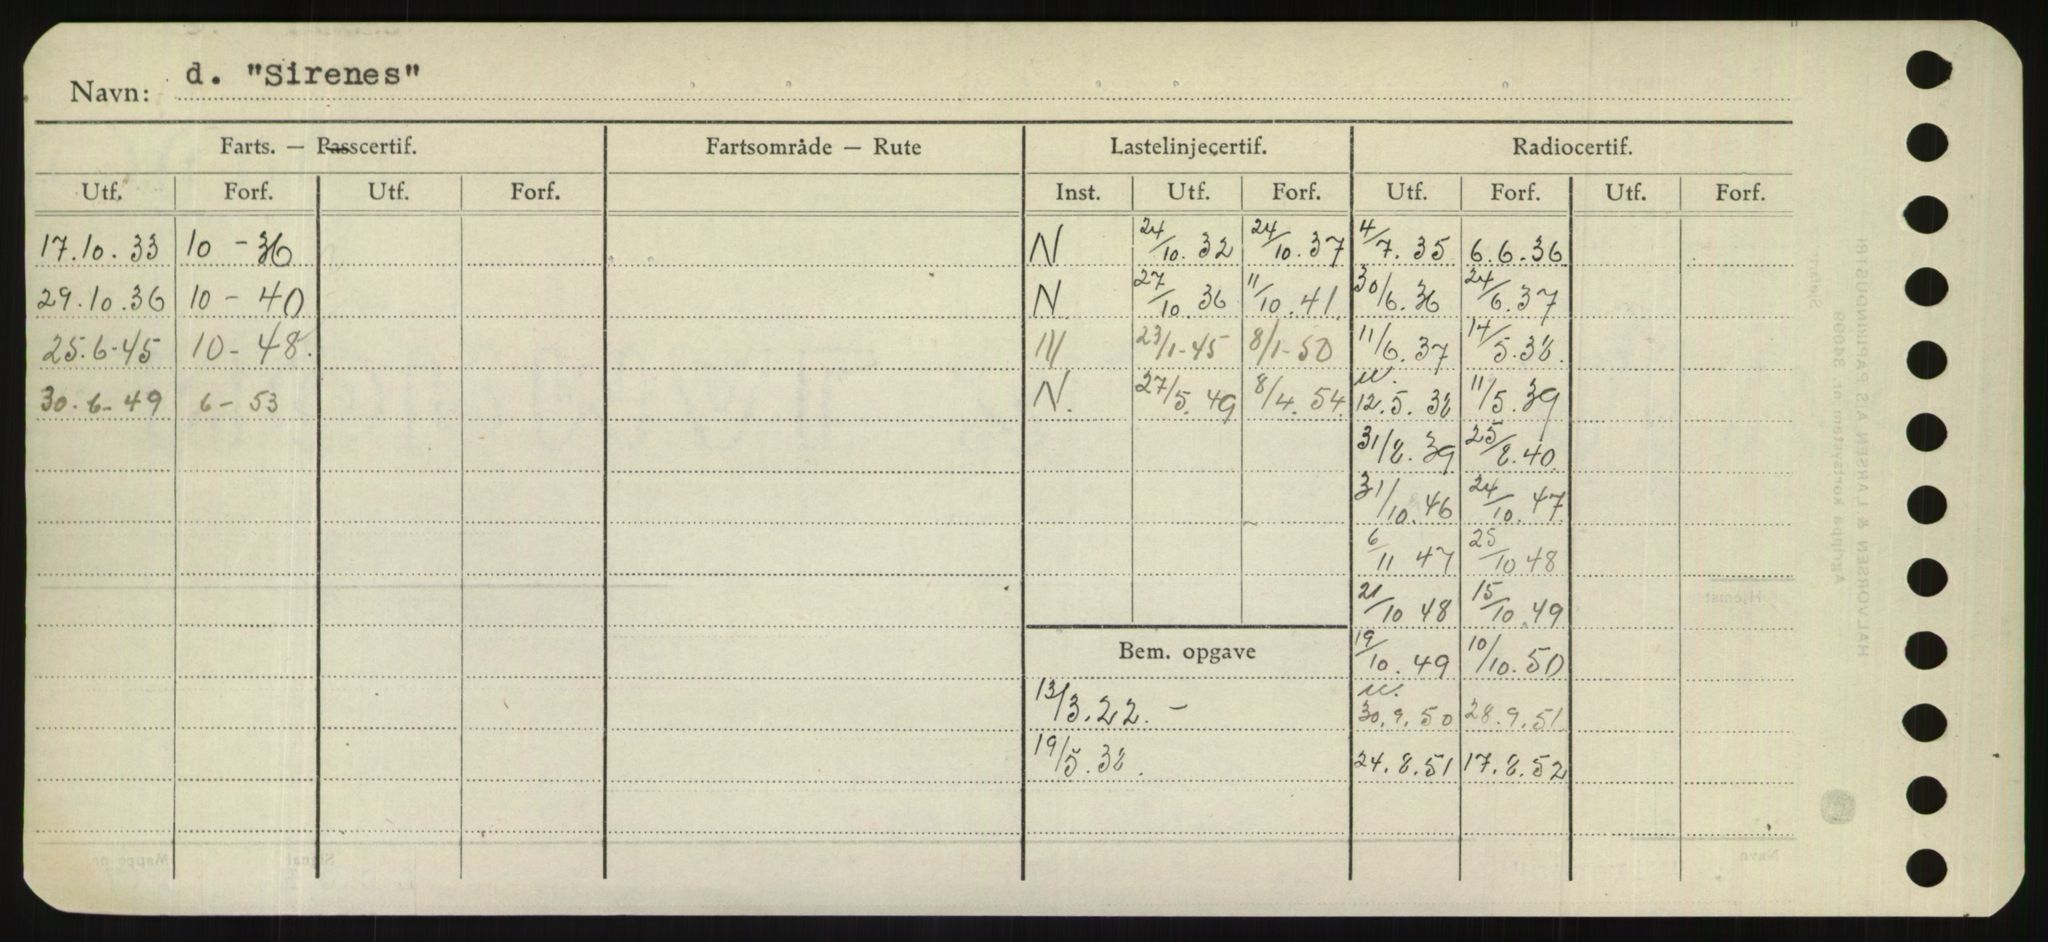 Navn: d. "Sirenes"
Farts. — Passcertif. Fartsområde — Rute Lastelinjecertif. Radiocertif.
Utf. Forf. Utf. Forf. Inst. Utf. Forf. Utf. Forf. Utf. Forf.
17.10.33 10 - 36 N 24/10. 32 24/10. 37 4/7. 35 6.6.36
29.10.36 10 - 40 N 27/10 36 11/10.41 30/6.36 24/6.37
25.6-45 10 - 48. 23/1-45 8/1-50 11/6.37 14/5.38.
30.6-49 6 - 53 N. 27/5. 49 8/4.54 12.5.38 11/5.39
31/8.39 25/8.40
31/10.46 24/10.47
6/11 47 25/10 48
21/10 48 15/10.49
19/10.49 10/10.50
Bem. opgave
13/3.22. - 30.9.50 28.9.51
19/5.38. 24.8.51 17.8.52
HALVORSEN & LARSEN A.S PAPIRINDUSTRI
Agrippa kortsystem nr. 34099
Hjemst
Navn
Signal
Mappe nr.